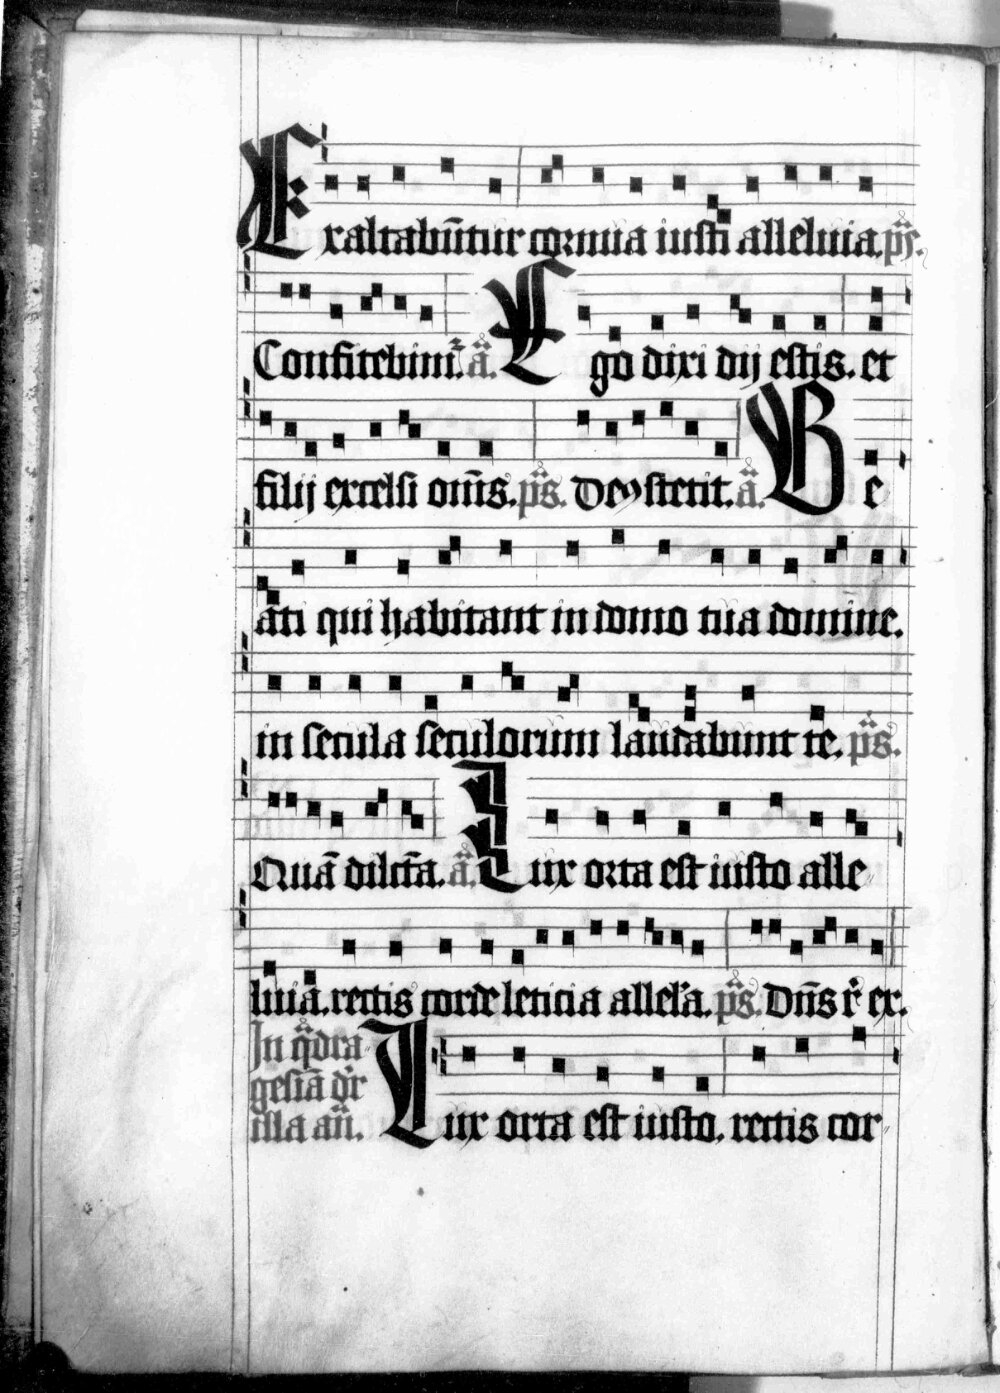 Exaltabūtur cornua iusti alleluia. ps̄.
Confitebimr̄. ā. Ego dixi dij estis. et
filij excelsi om̄s. ps̄. Deꝰ stetit. ā. Be
ati qui habitant in domo tua domine.
in secula seculorum laudabunt te. ps̄.
Quā dilcťa. ā. Lux orta est iusto alle
luia. rectis corde leticia alleľa. ps̄. Dn̄s r̄ ex.
In q̄dra
gesiā dr̄
illa an̄. Lux orta est iusto. rectis cor